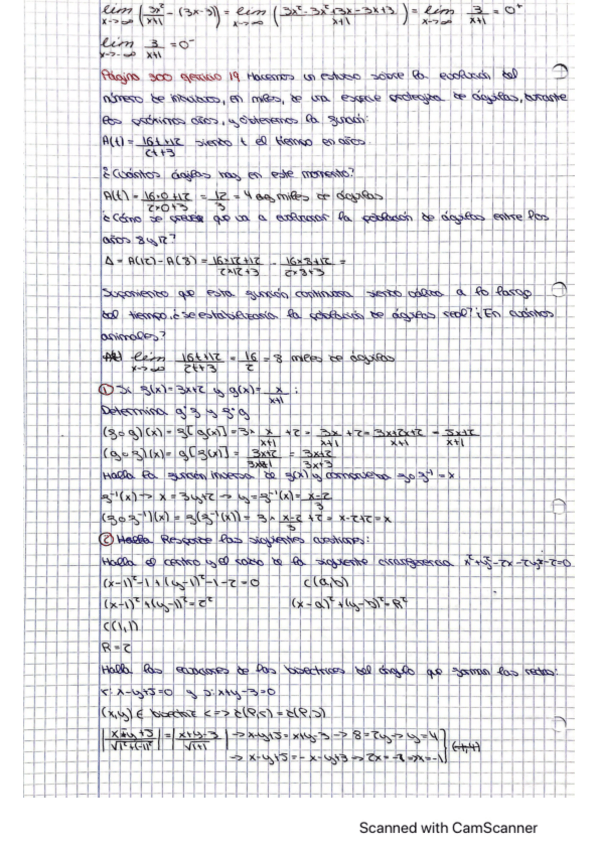 lim x→∞ (3x²/x+1 - (3x-3)) = lim x→∞ (3x²-3x²+3x-3x+3/x+1) = lim x→∞ 3/x+1 = 0⁺
lim x→-∞ 3/x+1 = 0⁻
Página 300 ejercicio 19 Hacemos un estudio sobre la evolución del
número de individuos, en miles, de una especie protegida de águilas, durante
los próximos años, y obtenemos la función:
A(t) = 16t+12/2t+3 siendo t el tiempo en años.
¿Cuántas águilas hay en este momento?
A(t) = 16×0+12/2×0+3 = 12/3 = 4 miles de águilas
¿Cómo se prevee que va a evolucionar la población de águilas entre los
años 8 y 12?
Δ = A(12) - A(8) = 16×12+12/2×12+3 - 16×8+12/2×8+3 =
Suponiendo que esta función continuara siendo válida a lo largo
del tiempo, ¿se estabilizaría la población de águilas real? ¿En cuántos
animales?
lim x→∞ 16t+12/2t+3 = 16/2 = 8 miles de águilas
① Si f(x) = 3x+2 y g(x) = x/x+1 :
Determina g∘f y f∘g
(f∘g)(x) = f[g(x)] = 3× x/x+1 +2 = 3x/x+1 +2 = 3x+2x+2/x+1 = 5x+2/x+1
(g∘f)(x) = g[f(x)] = 3x+2/3x+2+1 = 3x+2/3x+3
Halla la función inversa de f(x) y comprueba f∘f⁻¹ = x
f⁻¹(x) → x = 3y+2 → y = f⁻¹(x) = x-2/3
(f∘f⁻¹)(x) = f(f⁻¹(x)) = 3× x-2/3 +2 = x-2+2 = x
② Resporte las siguientes cuestiones:
Halla el centro y el radio de la siguiente circunferencia x²+y²-2x-2y-2=0
(x-1)²-1+(y-1)²-1-2=0 C(a,b)
(x-1)²+(y-1)²=2² (x-a)²+(y-b)²=R²
C(1,1)
R=2
Halla las ecuaciones de las bisectrices del ángulo que forman las rectas:
r: x-y+5=0 y s: x+y-3=0
(x,y) ∈ bisectriz <=> d(P,r) = d(P,s)
|x-y+5/√1²+(-1)²| = |x+y-3/√1+1| → x-y+5=x+y-3 → 8=2y → y=4
→ x-y+5=-x-y+3 → 2x=-2 → x=-1 } (-1,4)
Scanned with CamScanner